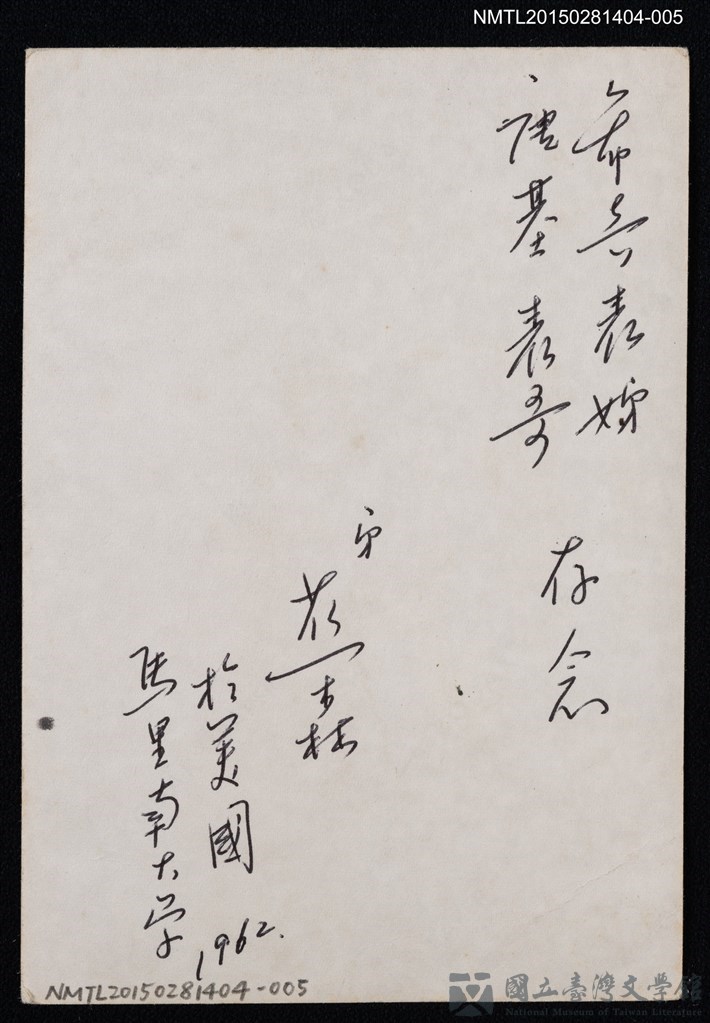 NMTL20150281404-005
表嫂
基表哥
存念
弟
於美國 1962.
馬里南大学
NMTL20150281404-005
國立臺灣文學館
National Museum of Taiwan Literature